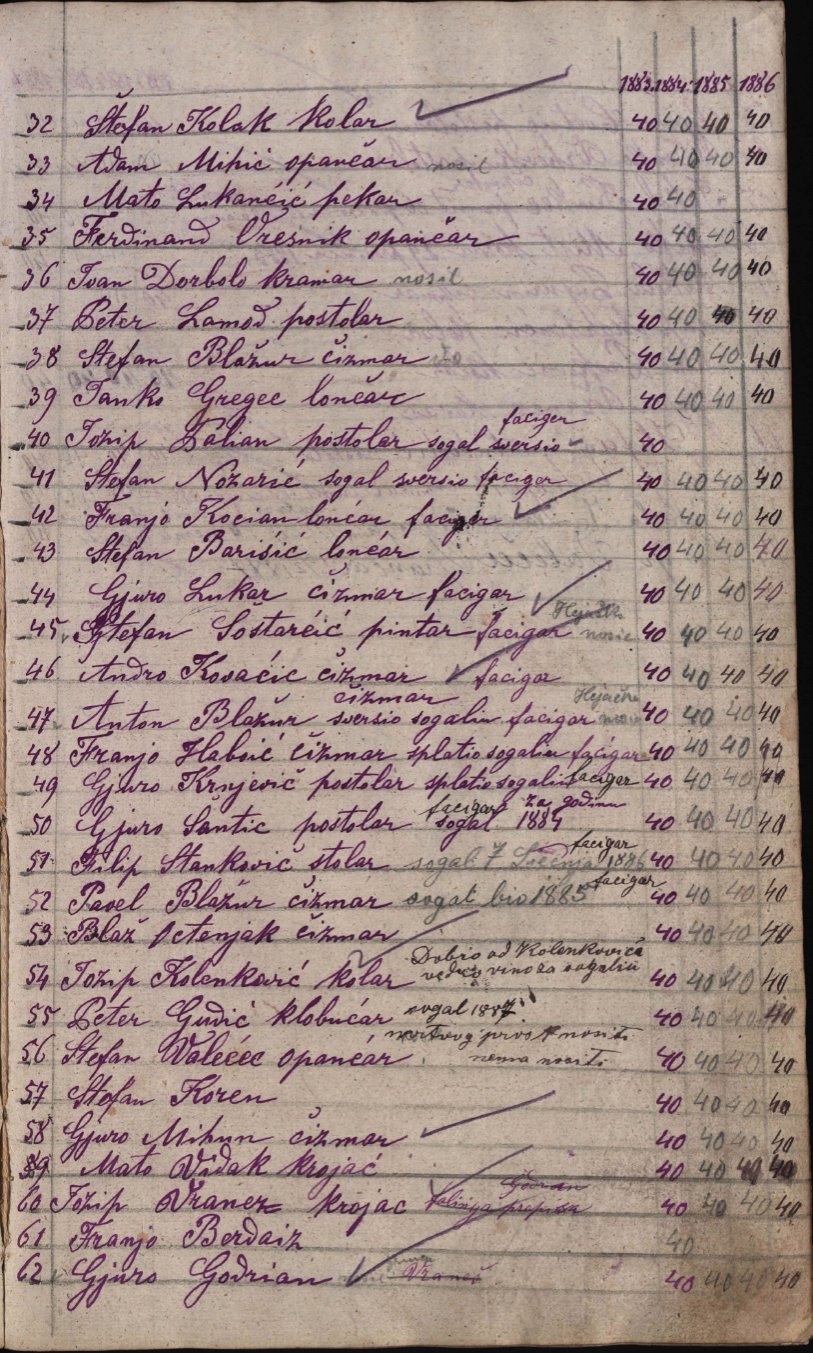 1883. 1884. 1885 1886
32 Štefan Kolak Kolar 40 40 40 40
33 Adam Mihić opančar nosil 40 40 40 40
34 Mato Lukančić pekar 40 40
35 Ferdinand Vresnik opančar 40 40 40 40
36 Ivan Dorbolo kramar nosil 40 40 40 40
37 Peter Lamod postolar 40 40 40 40
38 Stefan Blažur čizmar 40 40 40 40
39 Janko Gregec lončar 40 40 40 40
faciger
40 Jozip Palian postolar sogal sversio 40
41 Stefan Nozarić sogal sversio faciger 40 40 40 40
42 Franjo Kocian lončar faciger 40 40 40 40
43 Stefan Barišić lončar 40 40 40 40
44 Gjuro Lukar čizmar facigar 40 40 40 40
45 Stefan Šoštarćić pintar facigar nosil 40 40 40 40
46 Andro Kovačic čizmar faciga 40 40 40 40
čizmar
47 Anton Blažur sversio sogaliu facigar 40 40 40 40
48 Franjo Habsić čizmar splatio sogaliu facigar 40 40 40 40
49 Gjuro Krnjević postolar splatio sogaliu faciger 40 40 40 40
facigar za godinu
50 Gjuro Šantic postolar sogal 1884 40 40 40 40
facigar
51 Filip Stanković stolar sogal 7 Sečnja 1886 40 40 40 40
facigar
52 Pavel Blažur čizmar sogal bio 1885 40 40 40 40
53 Blaž Petenjak čizmar 40 40 40 40
Dobio od Kolenkovića
54 Jozip Kolenković kolar vedro vino za sogaliu 40 40 40 40
55 Peter Gudić klobučar sogal 1887 40 40 40 40
mortvog prvo nositi
56 Stefan Valečec opančar nema nositi 40 40 40 40
57 Stefan Koren 40 40 40 40
58 Gjuro Mihun čizmar 40 40 40 40
59 Mato Vidak krojać 40 40 40 40
60 Jozip Vranez krojac 40 40 40 40
61 Franjo Berdaiz 40
62 Gjuro Godrian Vranes 40 40 40 40